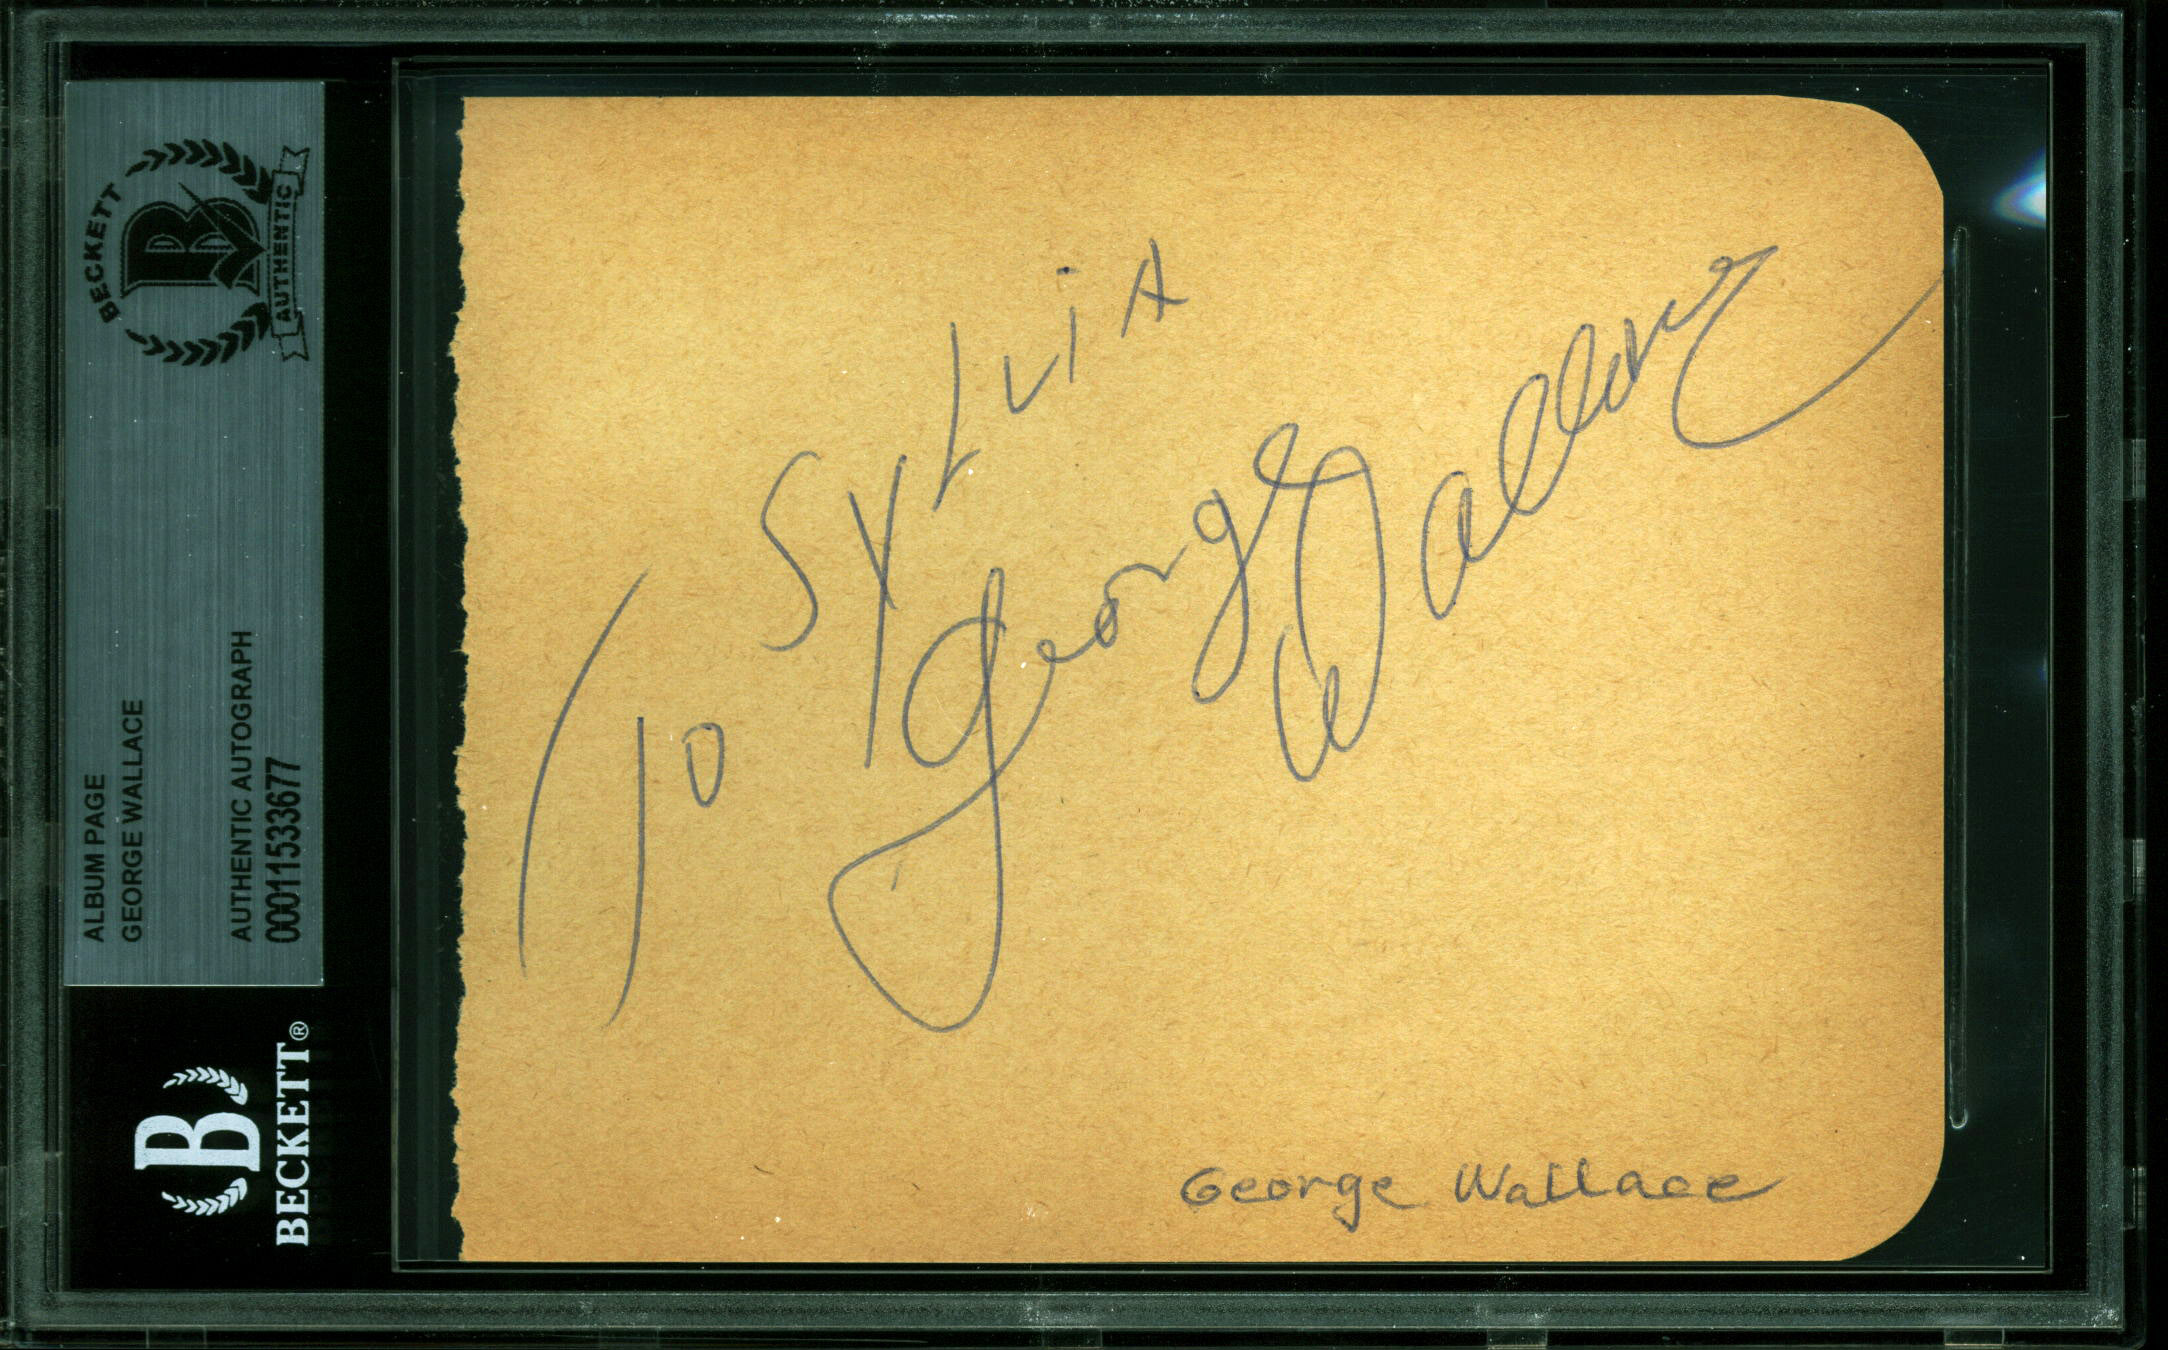 BECKETT
AUTHENTIC
ALBUM PAGE
GEORGE WALLACE
AUTHENTIC AUTOGRAPH
00011533677
BECKETT®
To SYLViA
George Wallace
George Wallace